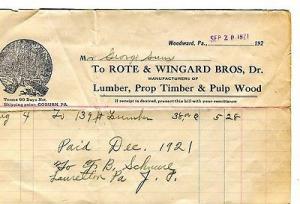 Woodward, Pa., SEP 20 1921 192
Mr George
To ROTE & WINGARD BROS, Dr.
MANUFACTURERS OF
Lumber, Prop Timber & Pulp Wood
If receipt is desired, present this bill with your remittance
Terms 60 Days Net.
Shipping point: COBURN, PA.
Aug 4 To 139 ft Lumber 5 28
Paid Dec. 1921
To F B.
Laurelton Pa J. P.